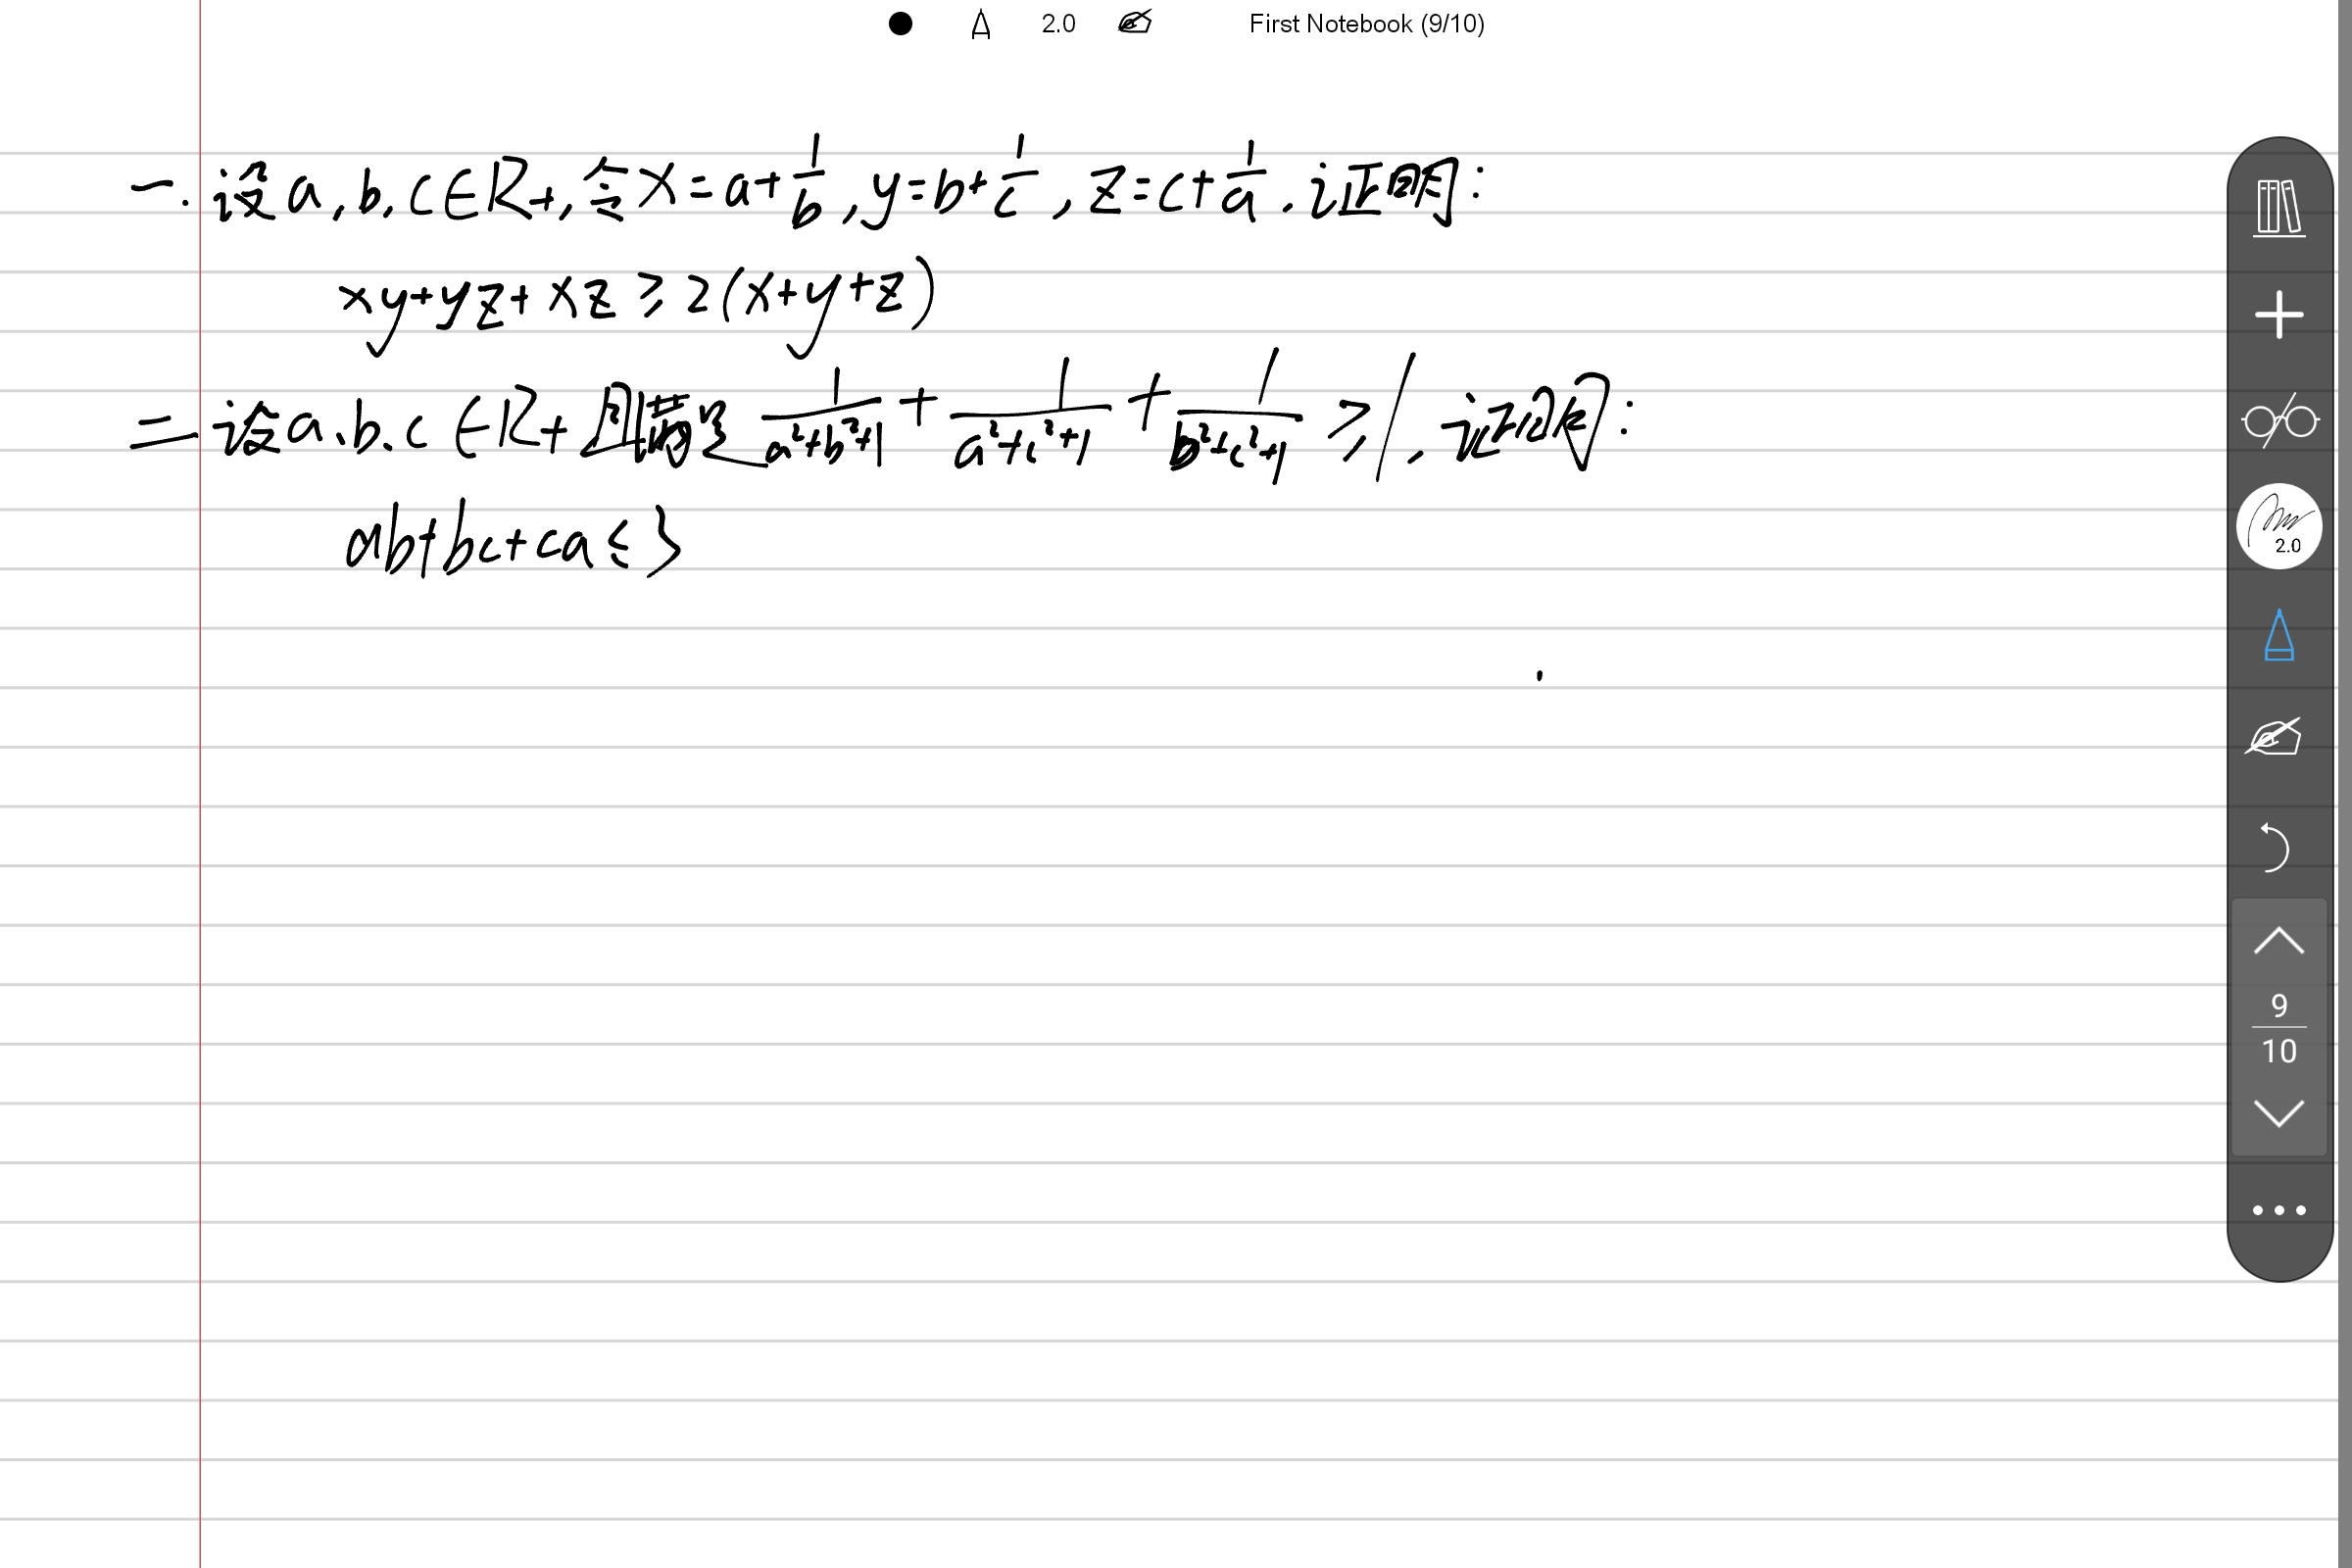 2.0 First Notebook (9/10)
一. 设a,b,c∈R+,令x=a+1/b,y=b+1/c,z=c+1/a.证明:
xy+yz+xz≥2(x+y+z)
二 设a.b.c∈R+ 且满足 1/(a²+b²+1)+1/(a²+c²+1)+1/(b²+c²+1)≥1,证明:
ab+bc+ca≤3
2.0
9
10